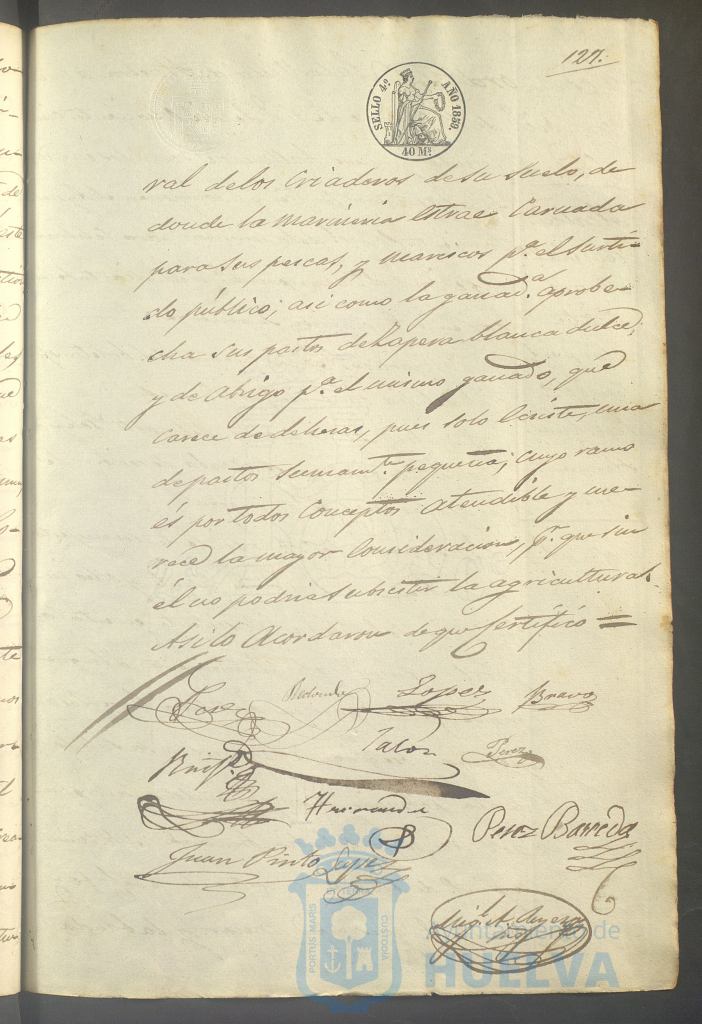 127.
SELLO 4º AÑO 1859.
40 Ms.
ral de los Criaderos de su suelo, de
donde la marineria estrae Carnada
para sus pescas, y mariscos pª. el surti-
do público; asi como la ganad.ª aprobe-
cha sus pastos de Zapera blanca dulce;
y de Abrigo pª. el mismo ganado, que
carece de dehesas, pues solo Ecsiste, una
de pastos sumamte. pequeña; cuyo ramo
és por todos Conceptos atendible y me-
rece la mayor Consideracion, pr. que sin
él no podria subsistir la agricultura.
Asi lo Acordaron de que Certifico =
Redondo Lopez Bravo
Talon Perez
Ruiz
Hernandz
Perez Barreda
Juan Pinto Lopez
PORTUS MARIS
CUSTODIA
Ayuntamiento de
HUELVA